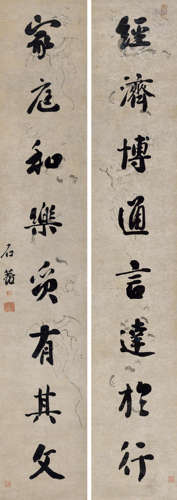 經濟博通言達於行
家庭和樂質有其文
石菴